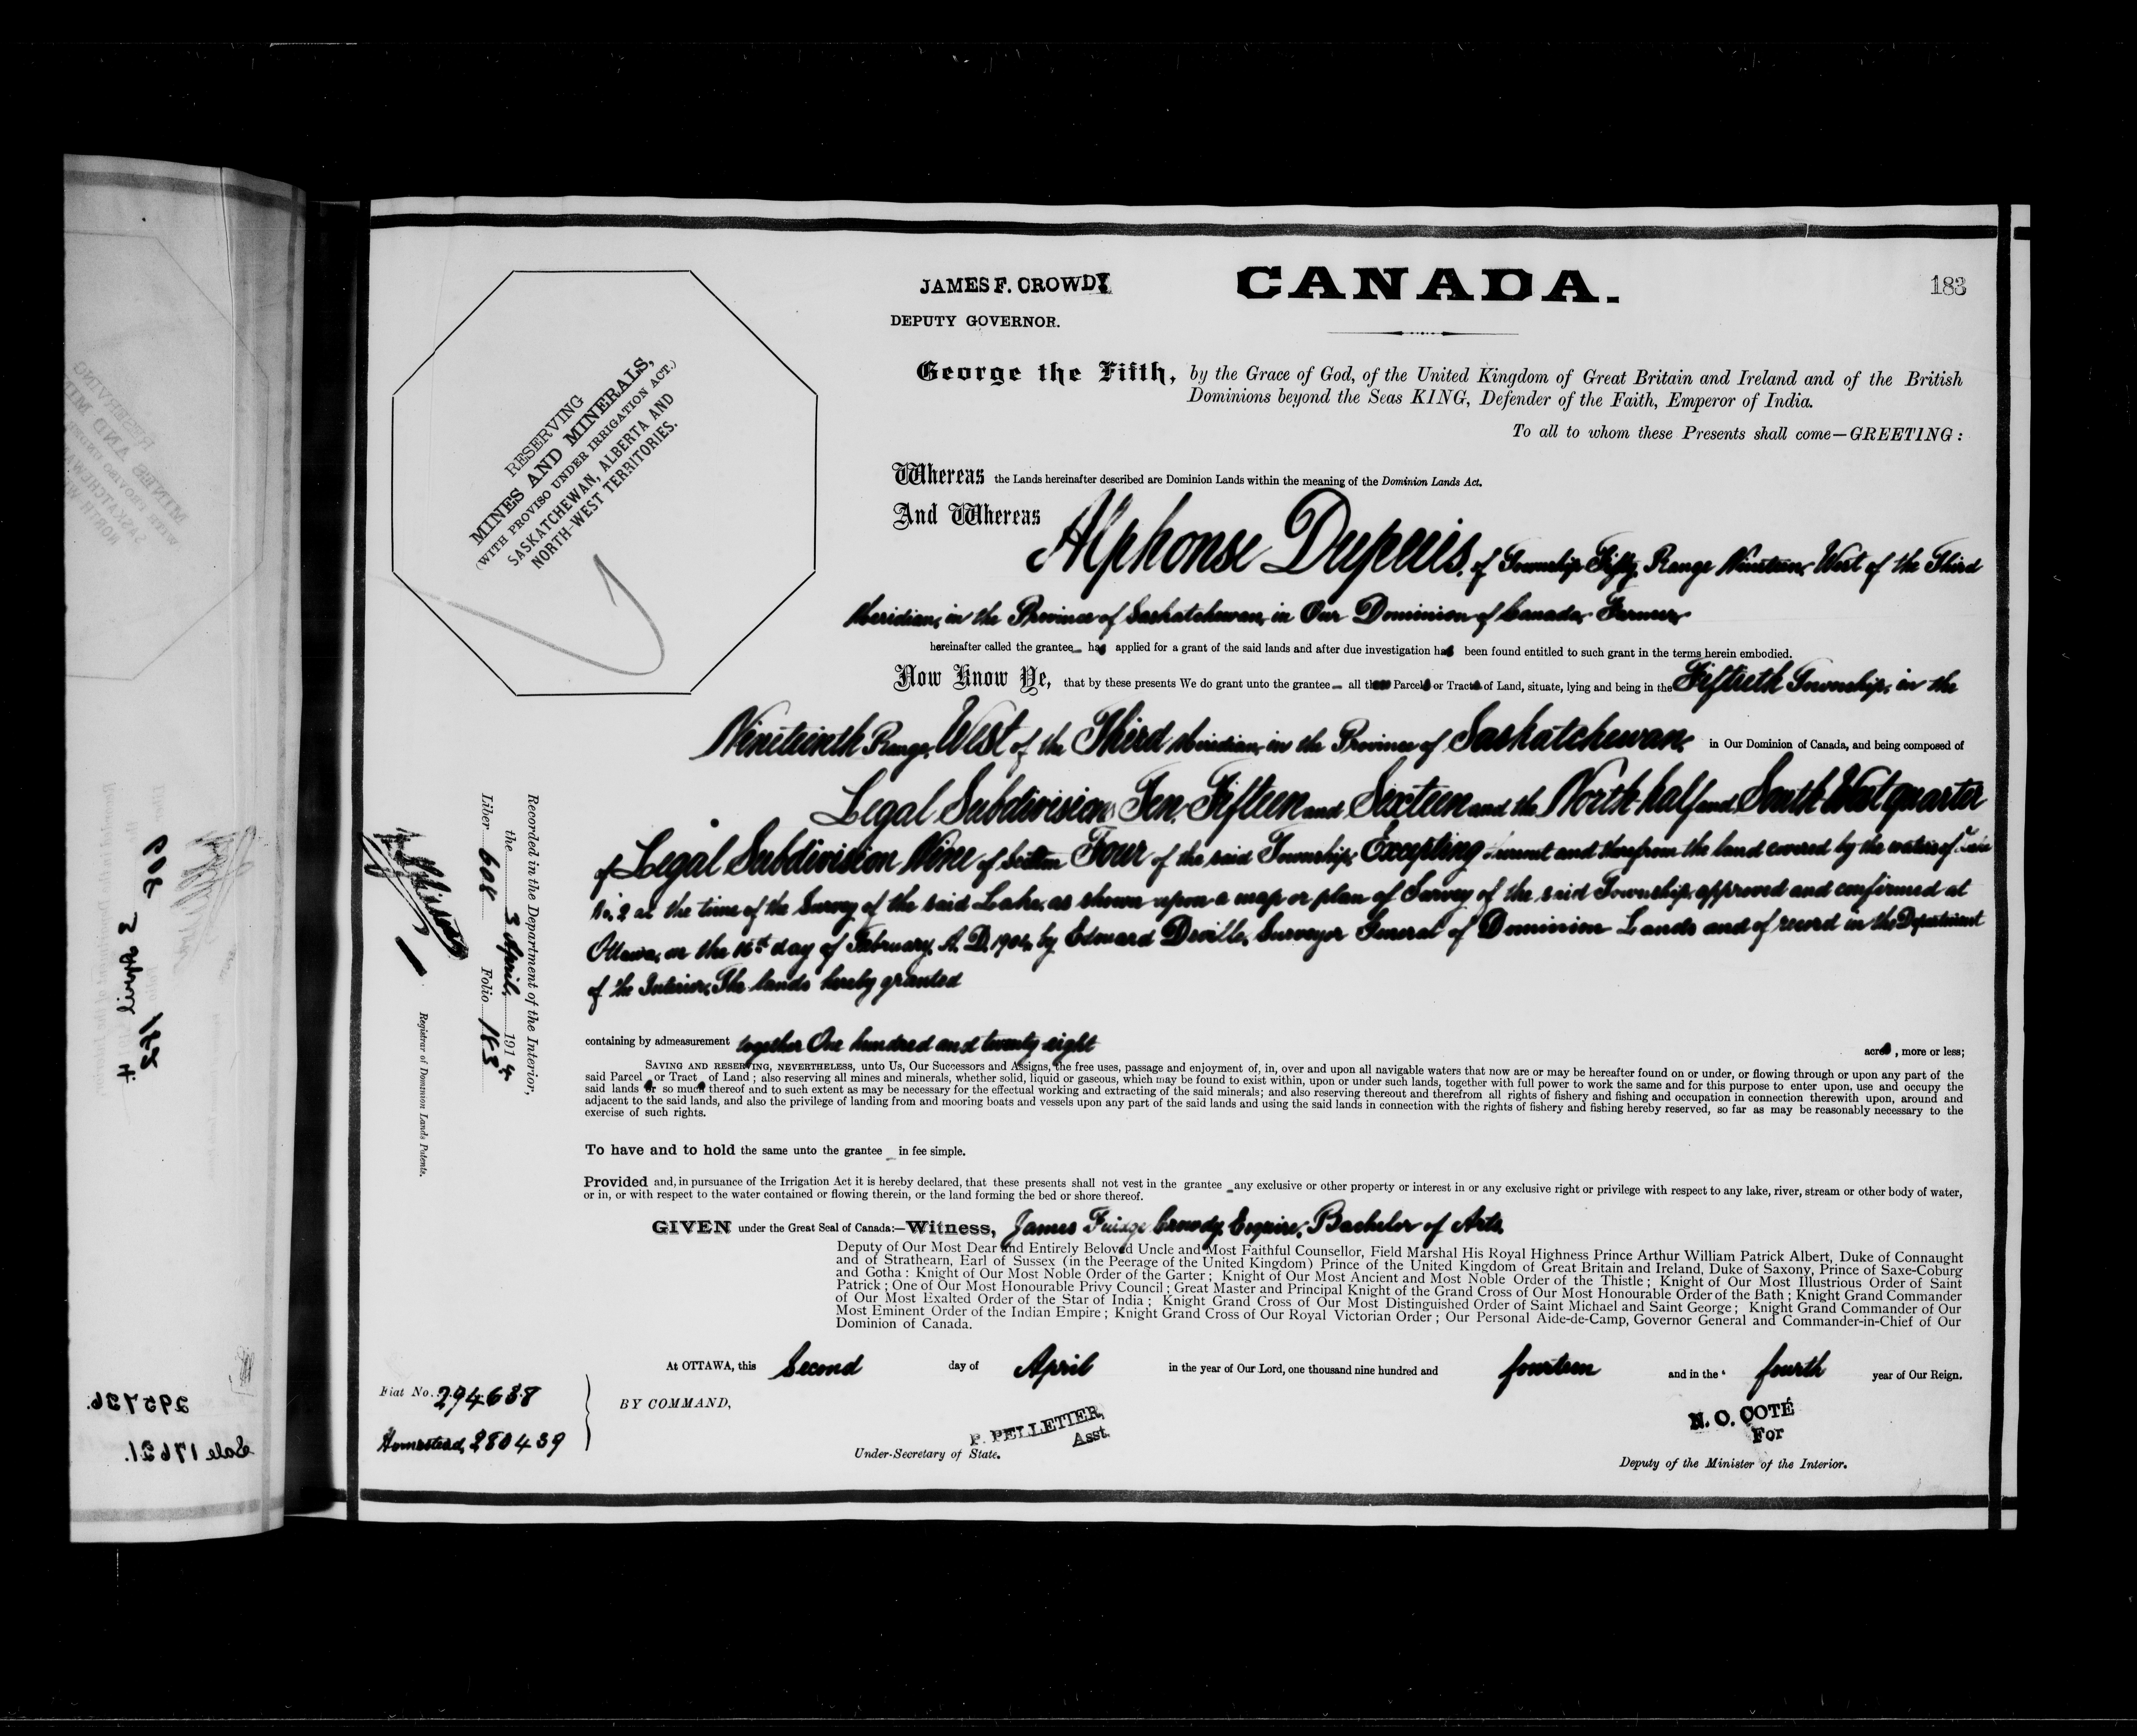 JAMES F. CROWDY
DEPUTY GOVERNOR.
CANADA.
183
RESERVING
MINES AND MINERALS,
(WITH PROVISO UNDER IRRIGATION ACT.)
SASKATCHEWAN, ALBERTA AND
NORTH-WEST TERRITORIES.
George the Fifth, by the Grace of God, of the United Kingdom of Great Britain and Ireland and of the British
Dominions beyond the Seas KING, Defender of the Faith, Emperor of India.
To all to whom these Presents shall come—GREETING:
Whereas the Lands hereinafter described are Dominion Lands within the meaning of the Dominion Lands Act.
And Whereas
Alphonse Dupuis, of Township Fifty, Range Nineteen, West of the Third
Meridian, in the Province of Saskatchewan, in Our Dominion of Canada, Farmer,
hereinafter called the grantee has applied for a grant of the said lands and after due investigation has been found entitled to such grant in the terms herein embodied.
Now Know Ye, that by these presents We do grant unto the grantee all Parcel or Tract of Land, situate, lying and being in the Fiftieth Township, in the
Nineteenth Range, West of the Third Meridian, in the Province of Saskatchewan, in Our Dominion of Canada, and being composed of
Legal Subdivisions Ten, Fifteen and Sixteen and the North half and South West quarter
of Legal Subdivision Nine of Section Four of the said Township, Excepting thereout and therefrom the land covered by the waters of Lake
No. 2 at the time of the Survey of the said Lake, as shown upon a map or plan of Survey of the said Township, approved and confirmed at
Ottawa, on the day of February, A. D. 1904, by Edouard Deville, Surveyor General of Dominion Lands and of record in the Department
of the Interior, The lands hereby granted
containing by admeasurement together One hundred and twenty eight acres, more or less;
SAVING AND RESERVING, NEVERTHELESS, unto Us, Our Successors and Assigns, the free uses, passage and enjoyment of, in, over and upon all navigable waters that now are or may be hereafter found on or under, or flowing through or upon any part of the
said Parcel or Tract of Land; also reserving all mines and minerals, whether solid, liquid or gaseous, which may be found to exist within, upon or under such lands, together with full power to work the same and for this purpose to enter upon, use and occupy the
said lands or so much thereof and to such extent as may be necessary for the effectual working and extracting of the said minerals; and also reserving thereout and therefrom all rights of fishery and fishing and occupation in connection therewith upon, around and
adjacent to the said lands, and also the privilege of landing from and mooring boats and vessels upon any part of the said lands and using the said lands in connection with the rights of fishery and fishing hereby reserved, so far as may be reasonably necessary to the
exercise of such rights.
To have and to hold the same unto the grantee in fee simple.
Provided and, in pursuance of the Irrigation Act it is hereby declared, that these presents shall not vest in the grantee any exclusive or other property or interest in or any exclusive right or privilege with respect to any lake, river, stream or other body of water,
or in, or with respect to the water contained or flowing therein, or the land forming the bed or shore thereof.
GIVEN under the Great Seal of Canada:—Witness, James Crowdy, Esquire, Bachelor of Arts,
Deputy of Our Most Dear and Entirely Beloved Uncle and Most Faithful Counsellor, Field Marshal His Royal Highness Prince Arthur William Patrick Albert, Duke of Connaught
and of Strathearn, Earl of Sussex (in the Peerage of the United Kingdom) Prince of the United Kingdom of Great Britain and Ireland, Duke of Saxony, Prince of Saxe-Coburg
and Gotha: Knight of Our Most Noble Order of the Garter; Knight of Our Most Ancient and Most Noble Order of the Thistle; Knight of Our Most Illustrious Order of Saint
Patrick; One of Our Most Honourable Privy Council; Great Master and Principal Knight of the Grand Cross of Our Most Honourable Order of the Bath; Knight Grand Commander
of Our Most Exalted Order of the Star of India; Knight Grand Cross of Our Most Distinguished Order of Saint Michael and Saint George; Knight Grand Commander of Our
Most Eminent Order of the Indian Empire; Knight Grand Cross of Our Royal Victorian Order; Our Personal Aide-de-Camp, Governor General and Commander-in-Chief of Our
Dominion of Canada.
At OTTAWA, this Second day of April in the year of Our Lord, one thousand nine hundred and fourteen and in the fourth year of Our Reign.
BY COMMAND,
P. PELLETIER,
Asst.
Under-Secretary of State.
N. O. COTÉ
For
Deputy of the Minister of the Interior.
Fiat No. 294638
Homestead, 280439
Recorded in the Department of the Interior,
the 3 April, 1914
Liber 608 Folio 183
Registrar of Dominion Lands Patents.
295736.
Sale 17621.